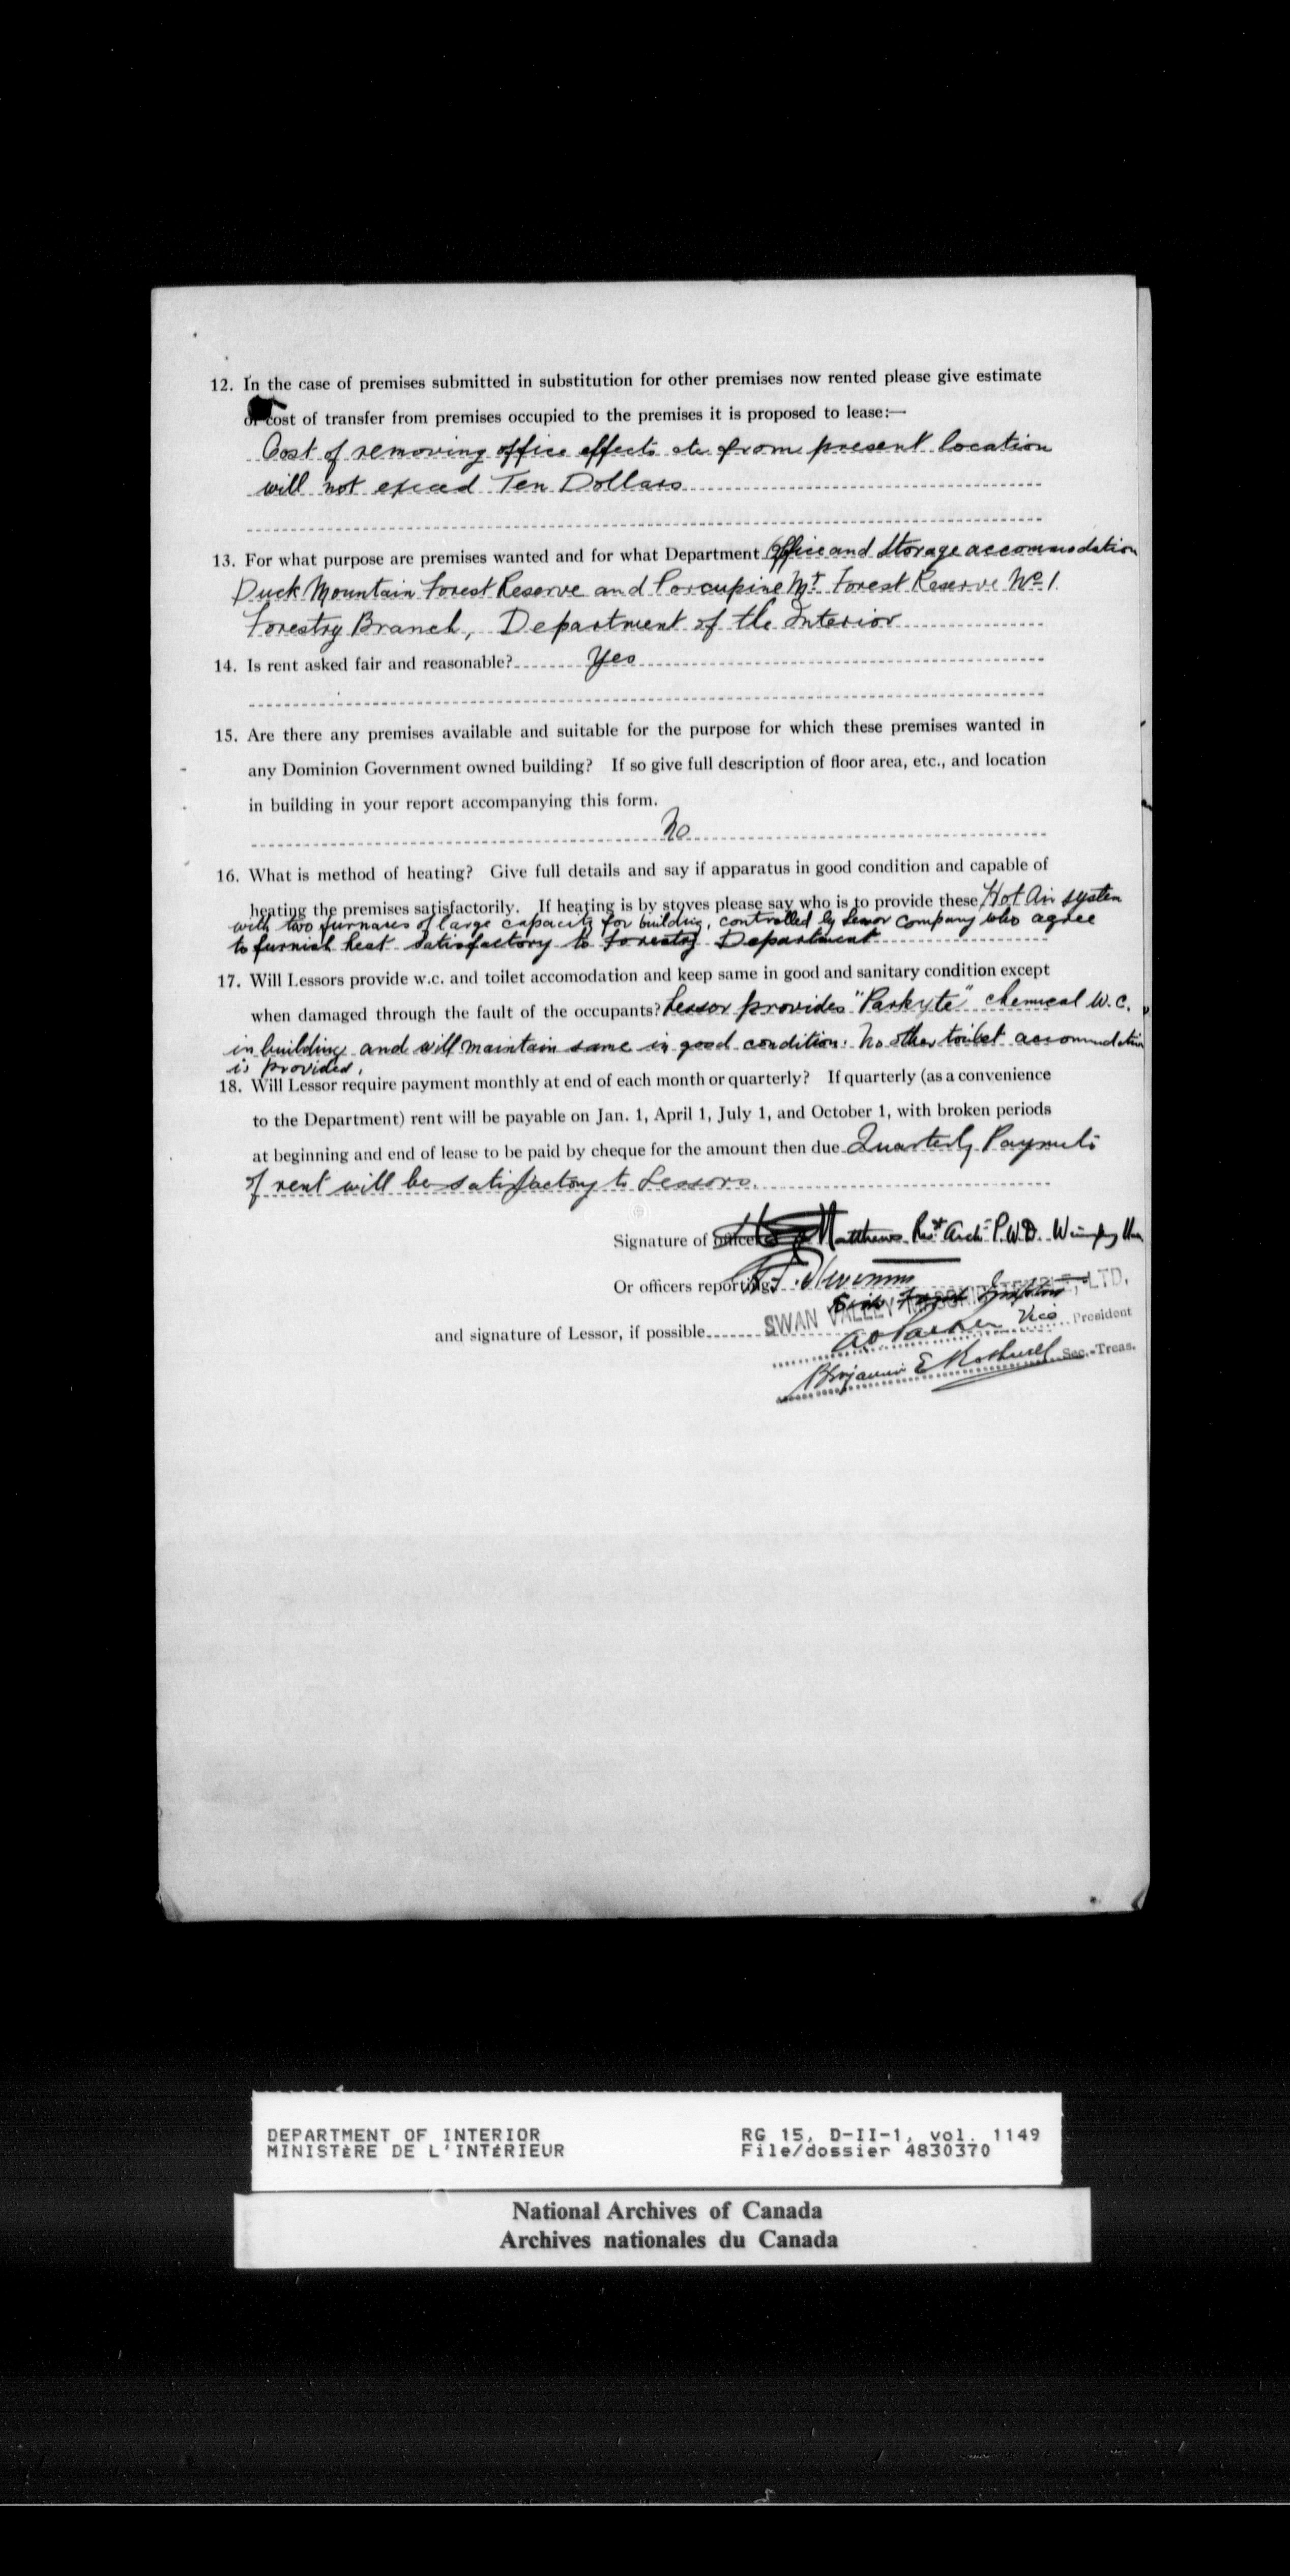 12. In the case of premises submitted in substitution for other premises now rented please give estimate
or cost of transfer from premises occupied to the premises it is proposed to lease:—
Cost of removing office effects etc from present location
will not exceed Ten Dollars
13. For what purpose are premises wanted and for what Department Office and Storage accommodation
Duck Mountain Forest Reserve and Porcupine Mt. Forest Reserve No 1.
Forestry Branch, Department of the Interior
14. Is rent asked fair and reasonable? Yes
15. Are there any premises available and suitable for the purpose for which these premises wanted in
any Dominion Government owned building? If so give full description of floor area, etc., and location
in building in your report accompanying this form.
No
16. What is method of heating? Give full details and say if apparatus in good condition and capable of
heating the premises satisfactorily. If heating is by stoves please say who is to provide these Hot Air system
with two furnaces of large capacity for building, controlled by Lessor Company who agree
to furnish heat satisfactory to Forestry Department
17. Will Lessors provide w.c. and toilet accomodation and keep same in good and sanitary condition except
when damaged through the fault of the occupants? Lessor provides "Parkyte" chemical W.C.
in building and will maintain same in good condition. No other toilet accommodation
is provided.
18. Will Lessor require payment monthly at end of each month or quarterly? If quarterly (as a convenience
to the Department) rent will be payable on Jan. 1, April 1, July 1, and October 1, with broken periods
at beginning and end of lease to be paid by cheque for the amount then due Quarterly Payments
of rent will be satisfactory to Lessors.
Signature of officer Matthews Rest Arch P.W.D. Winnipeg Man
Or officers reporting
SWAN VALLEY LTD.
and signature of Lessor, if possible Parker Vice President
Benjamin E Rothwell Sec.-Treas.
DEPARTMENT OF INTERIOR RG 15, D-II-1, vol. 1149
MINISTÈRE DE L'INTÉRIEUR File/dossier 4830370
National Archives of Canada
Archives nationales du Canada